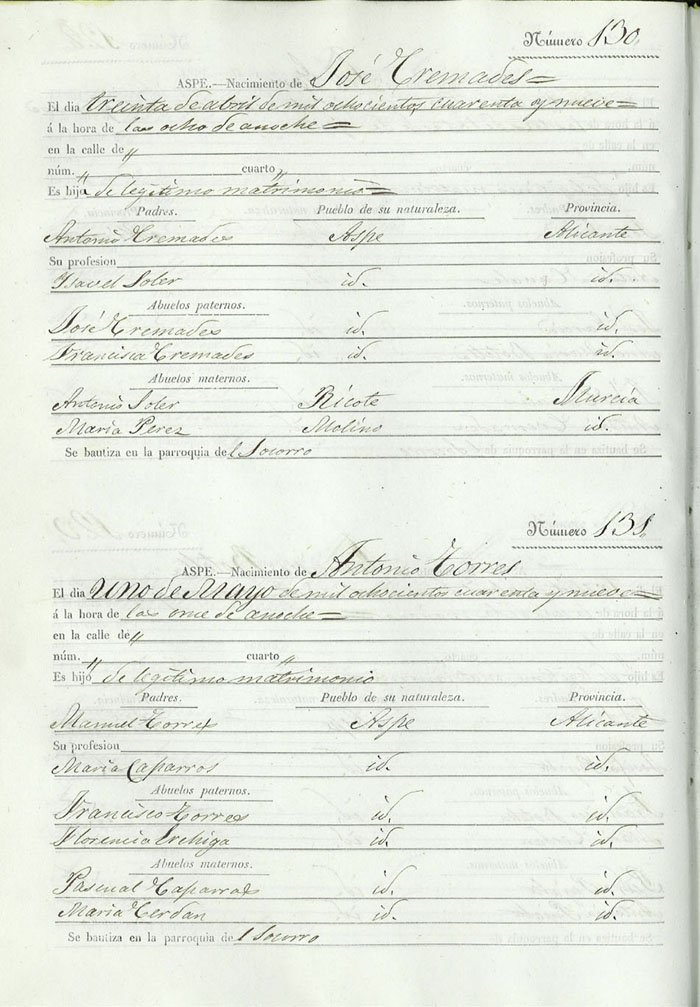 Número 130.
ASPE.—Nacimiento de José Cremades=
El dia treinta de abril de mil ochocientos cuarenta y nueve=
á la hora de las ocho de anoche=
en la calle de "
núm. " cuarto "
Es hijo de legitimo matrimonio=
Padres. Pueblo de su naturaleza. Provincia.
Antonio Cremades Aspe Alicante
Su profesion
Isavel Soler id. id.
Abuelos paternos.
José Cremades id. id.
Francisca Cremades id. id.
Abuelos maternos.
Antonio Soler Ricote Murcia
Maria Perez Molino id.
Se bautiza en la parroquia del Socorro
Número 131.
ASPE.—Nacimiento de Antonio Torres
El dia uno de Mayo de mil ochocientos cuarenta y nueve=
á la hora de las once de anoche=
en la calle de "
núm. " cuarto "
Es hijo de legitimo matrimonio
Padres. Pueblo de su naturaleza. Provincia.
Manuel Torres Aspe Alicante
Su profesion
Maria Caparros id. id.
Abuelos paternos.
Francisco Torres id. id.
Florencia id. id.
Abuelos maternos.
Pascual Caparros id. id.
Maria Cerdan id. id.
Se bautiza en la parroquia del Socorro